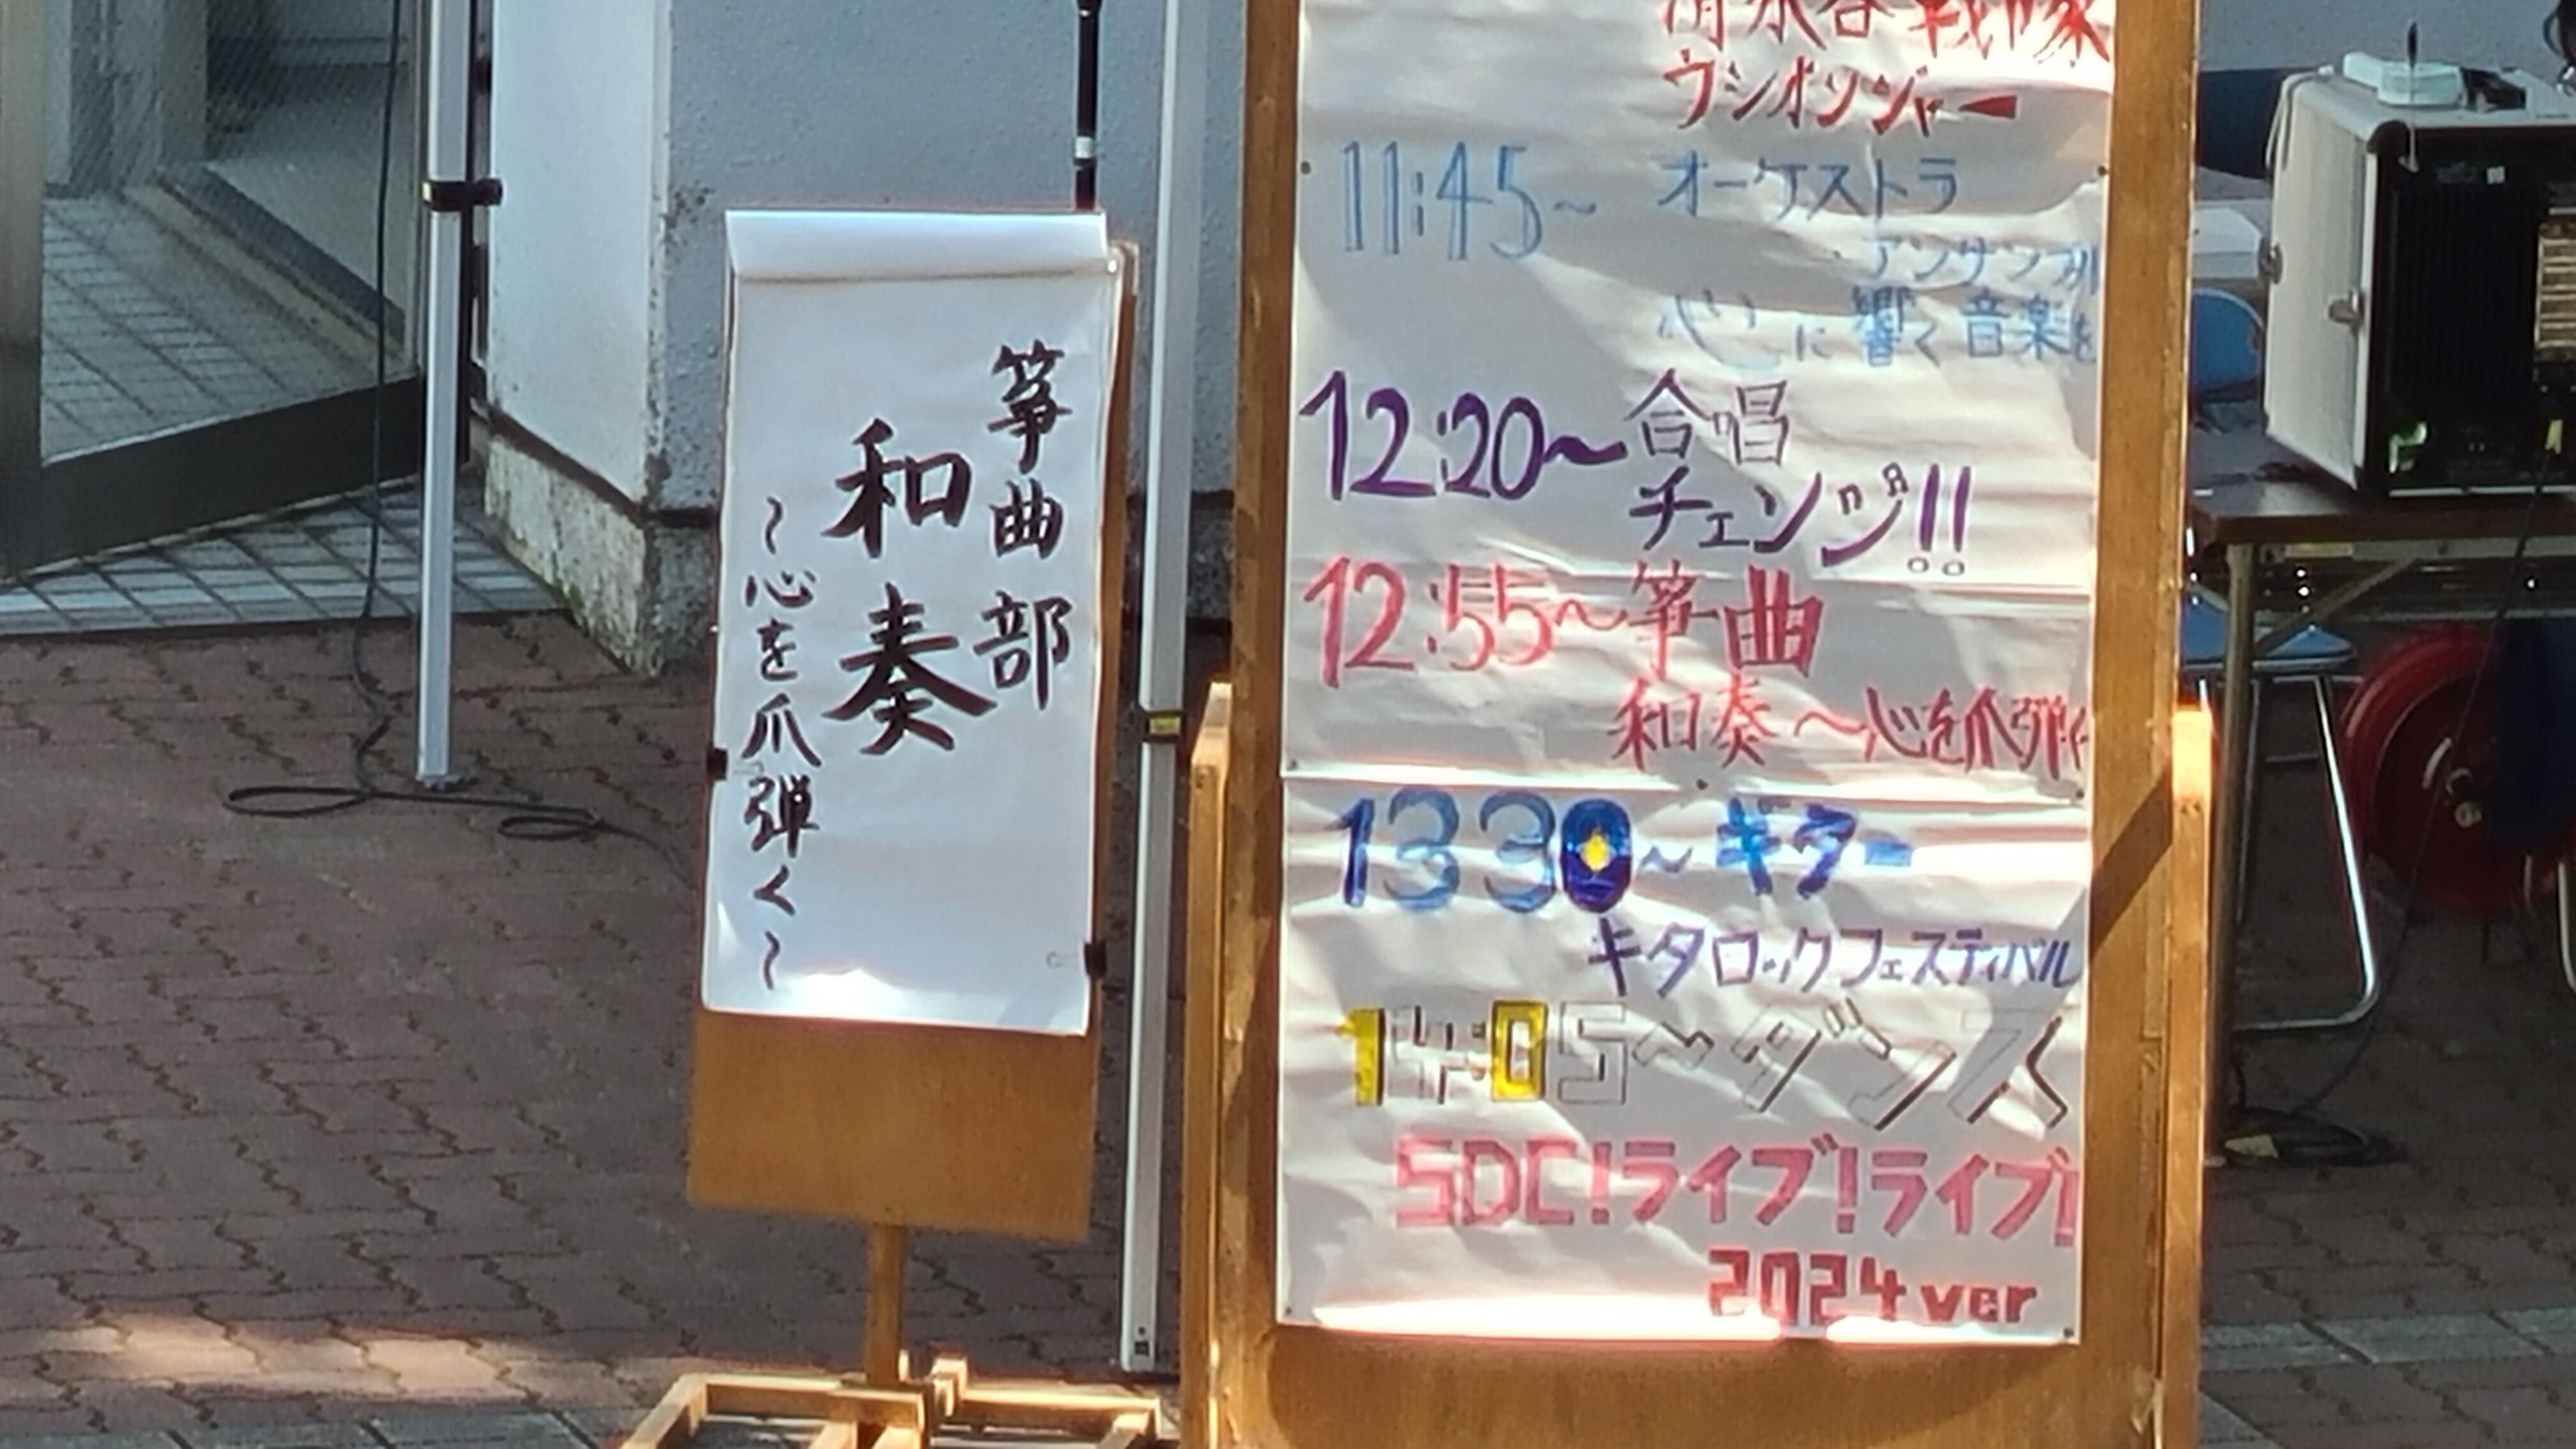 箏曲部
和奏
〜心を爪弾く〜
清水谷戦隊
ウシオソジャー
11:45~ オーケストラ
アンサンブル
心に響く音楽を
12:20~ 合唱
チェンジ!!
12:55~ 箏曲
和奏 〜心を爪弾く
13 30~ ギター
キタロックフェスティバル
14:05~ダンス
SDC!ライブ!ライブ!
2024 ver